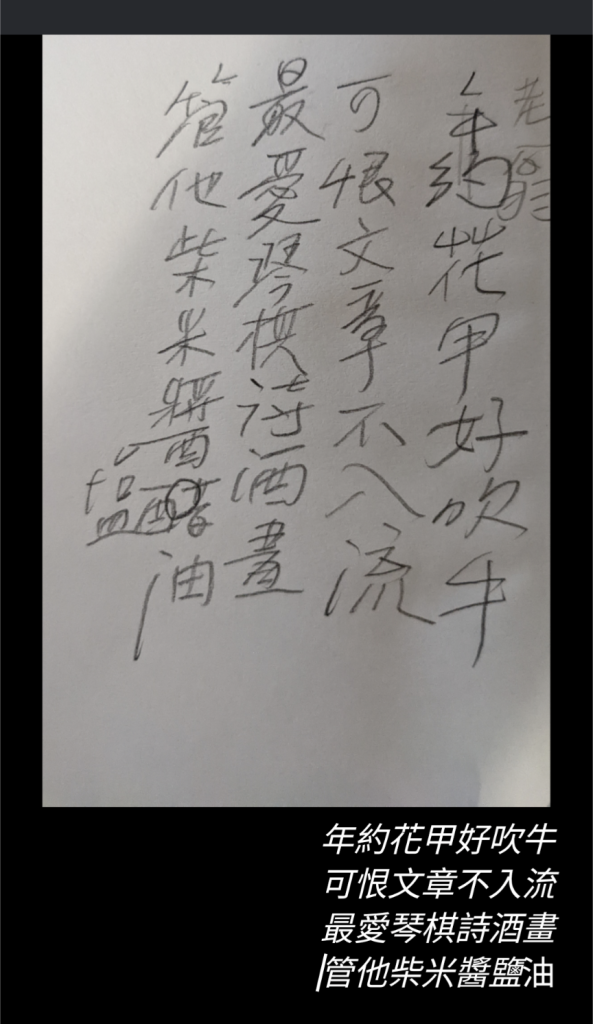 老
年約花甲好吹牛
可恨文章不入流
最愛琴棋詩酒畫
管他柴米醬醋油
塩
年約花甲好吹牛
可恨文章不入流
最愛琴棋詩酒畫
管他柴米醬鹽油